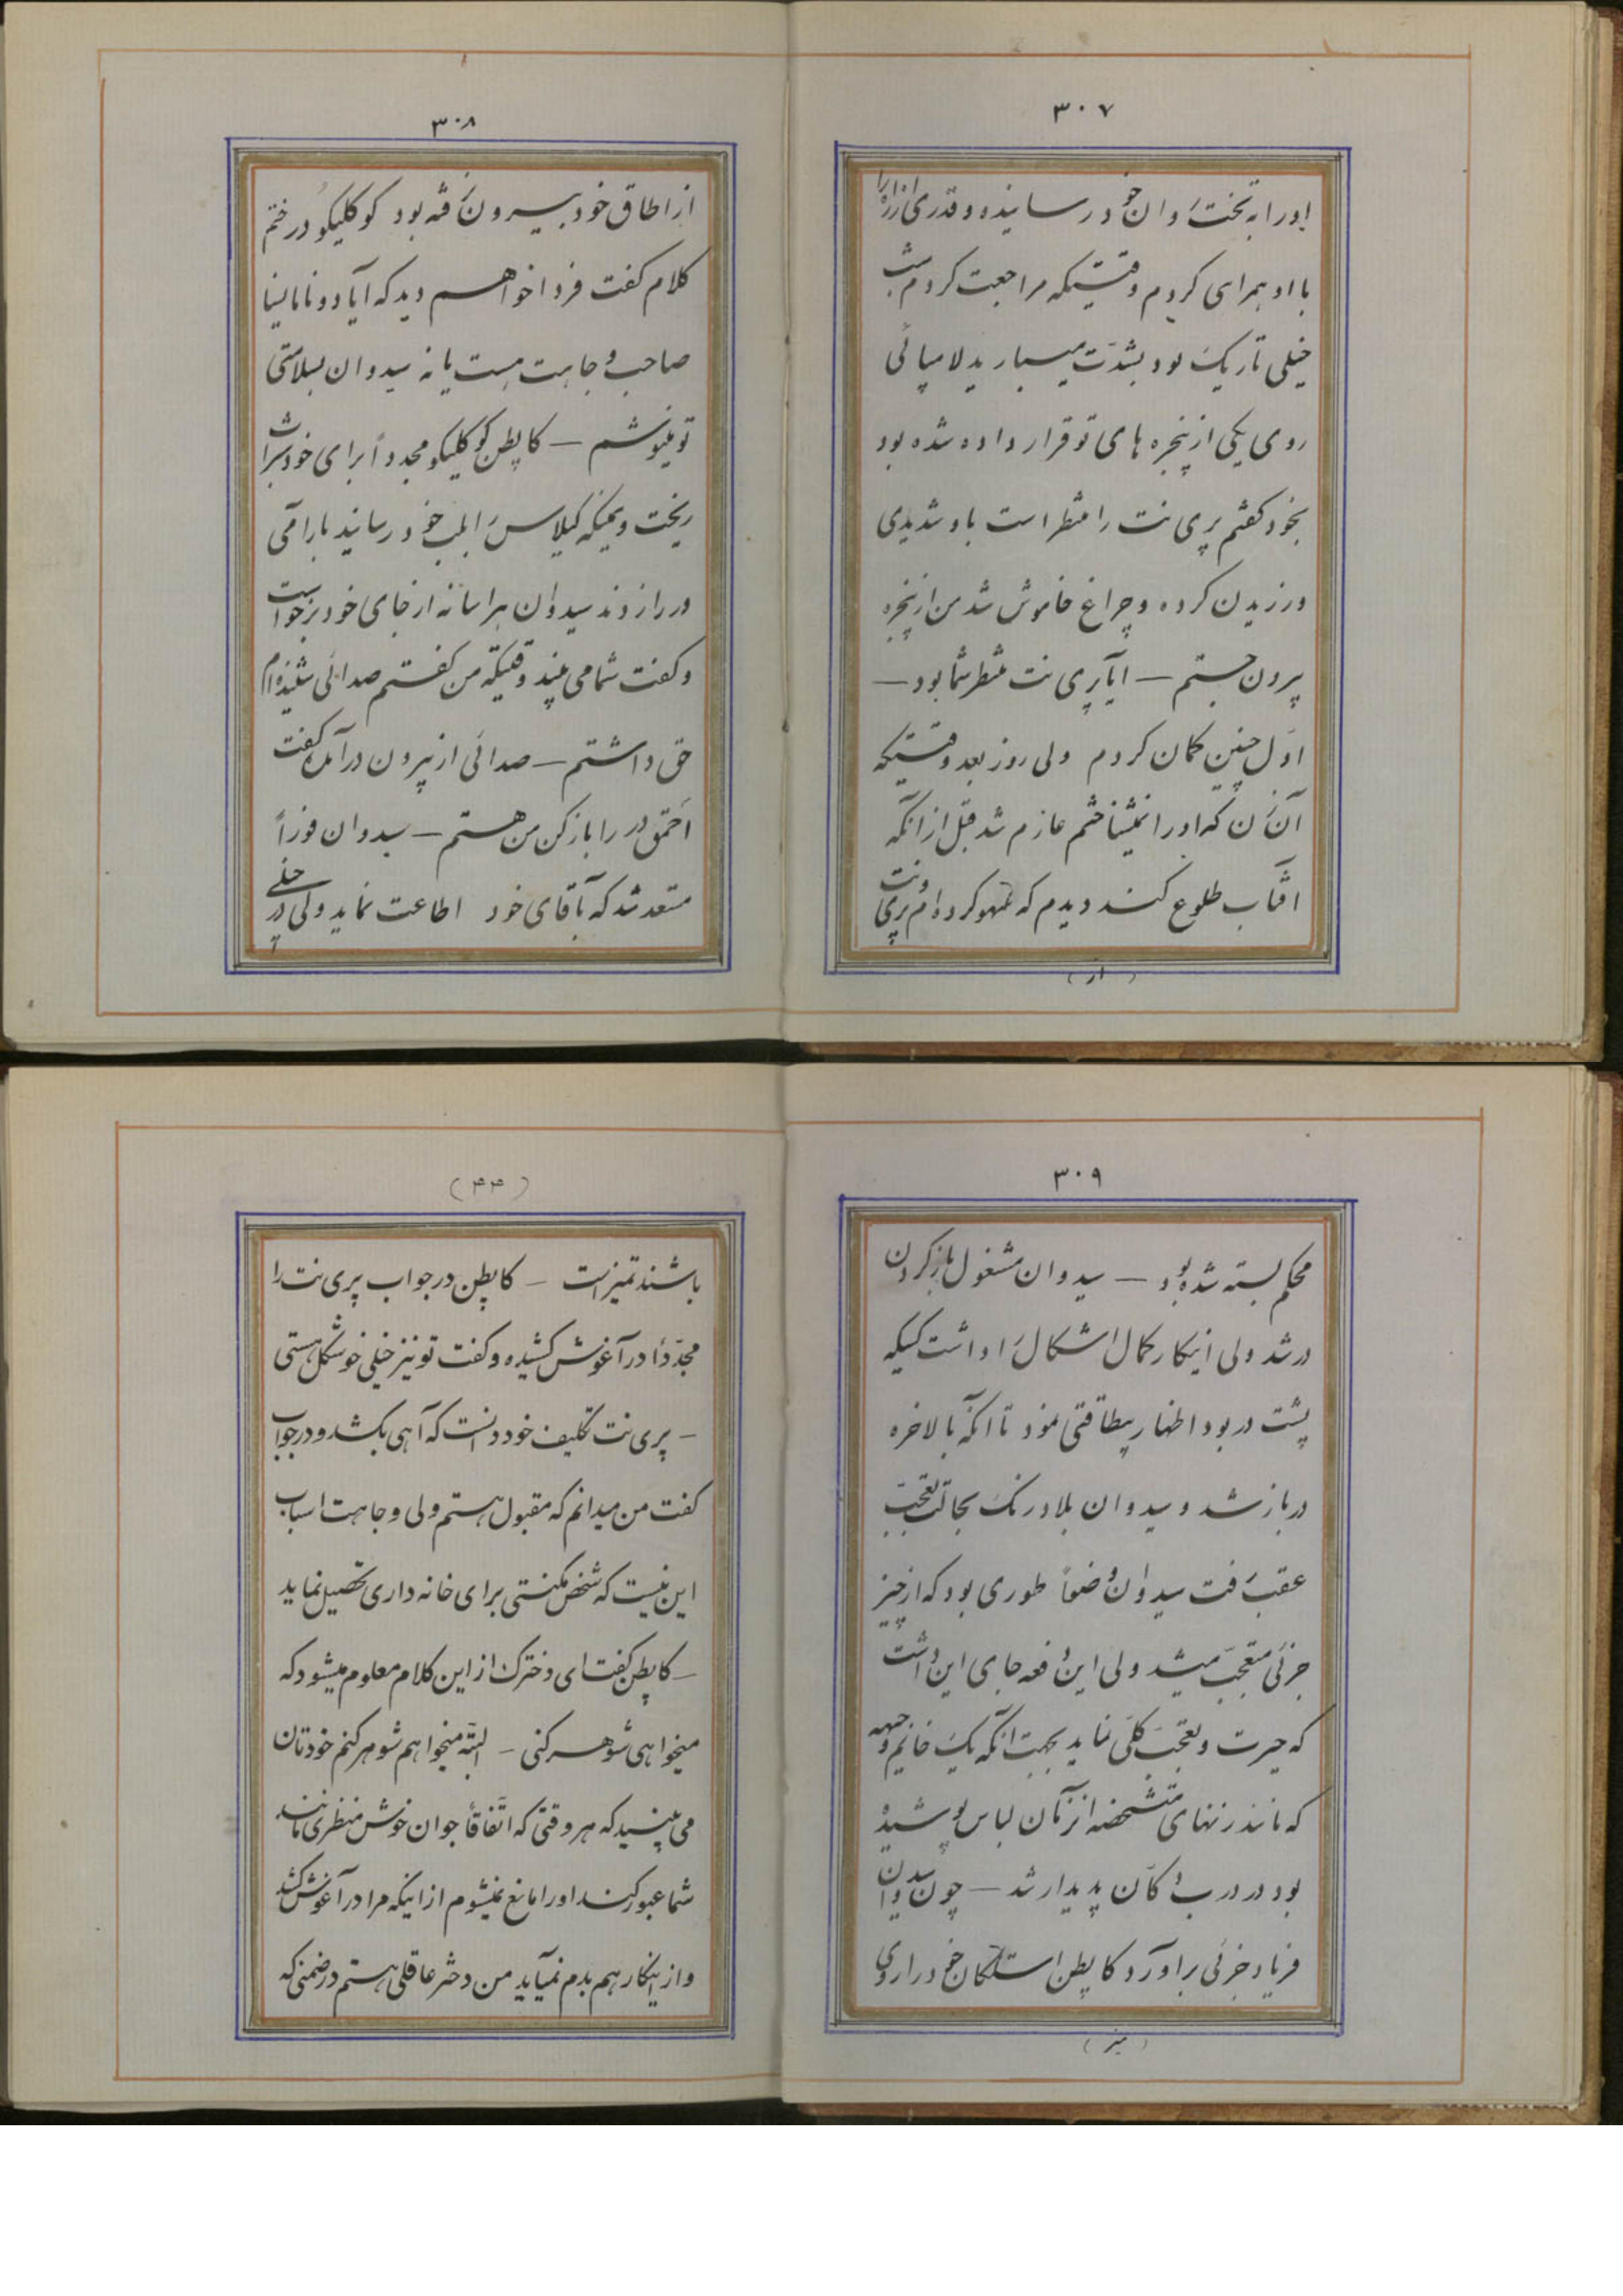 ۳۰۷
اورا به تخت روان خود رسانیده و قدری از راه را
با او همراهی کردم وقتیکه مراجعت کردم شب
خیلی تاریک بود بشدت میبارید لامپائی
روی یکی از پنجره های تو قرار داده شده بود
بخود گفتم پری نت را منتظر است باد شدیدی
ورزیدن کرده و چراغ خاموش شد من از پنجره
بیرون جستم — آیا پری نت منتظر شما بود —
اول چنین گمان کردم ولی روز بعد وقتیکه
آن زن که اورا نمیشناختم عازم شد قبل از آنکه
افتاب طلوع کند دیدم که سهو کرده ام پری نت
(از)
۳۰۸
از اطاق خود بیرون نرفته بود کوکلیکو در ختم
کلام گفت فردا خواهم دید که آیا دونا مانیا
صاحب وجاهت هست یا نه سیدوان بسلامتی
تو مینوشم — کاپطن کوکلیکو مجدداً برای خود شراب
ریخت و همینکه گیلاس را بلب خود رسانید بارامی
در را زدند سیدوان هراسانه از جای خود برخواست
و گفت شما می بینید وقتیکه من گفتم صدائی شنیده ام
حق داشتم — صدائی از بیرون درآمد گفت
احمق در را باز کن من هستم — سیدوان فوراً
متعد شد که بآقای خود اطاعت نماید ولی در خیلی
۳۰۹
محکم بسته شده بود — سیدوان مشغول باز کردن
در شد ولی اینکار کمال اشکال را داشت کسیکه
پشت در بود اظهار بیطاقتی نمود تا آنکه بالاخره
در باز شد و سیدوان بلادرنگ بحالت تعجب
عقب رفت سیدوان وضعاً طوری بود که از چیز
جزئی متعجب میشد ولی این دفعه جای این داشت
که حیرت و تعجب کلی نماید بجهت آنکه یک خانم وجیهه
که مانند زنهای متشخصه انزمان لباس پوشیده
بود در درب دکان پدیدار شد — چون سیدوان
فریاد جزئی براورد کاپطن استکان خود را روی
(میز)
(۴۴)
باشند تمیز است — کاپطن در جواب پری نت را
مجدداً در آغوش کشیده و گفت تو نیز خیلی خوشگل هستی
— پری نت تکلیف خود دانست که آهی بکشد و در جواب
گفت من میدانم که مقبول هستم ولی وجاهت اسباب
این نیست که شخص مکنتی برای خانه داری تحصیل نماید
— کاپطن گفت ای دخترک از این کلام معلوم میشود که
میخواهی شوهر کنی — البته میخواهم شوهر کنم خودتان
می بینید که هر وقتی که اتفاقاً جوان خوش منظری مانند
شما عبور کند اورا مانع نمیشوم از اینکه مرا در آغوش کشد
و از اینکار هم بدم نمیآید من دختر عاقلی هستم در ضمنی که